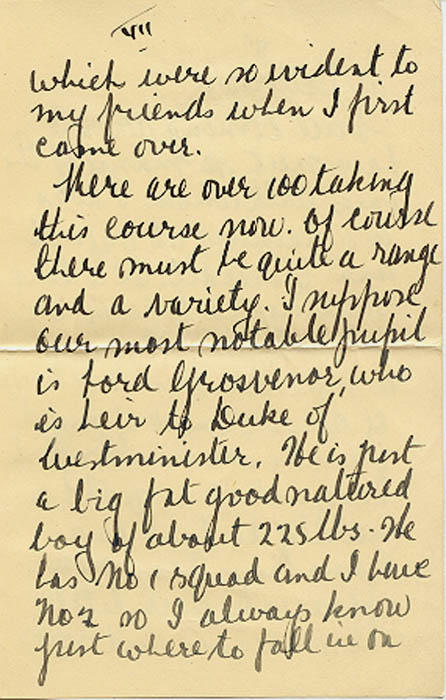 VII
which were so evident to
my friends when I first
came over.
There are over 100 taking
this course now. Of course
there must be quite a range
and a variety. I suppose
our most notable pupil
is Lord Grosvenor, who
is heir to Duke of
Westminister. He is just
a big fat good natured
boy of about 225 lbs. He
has No 1 squad and I have
No 2 so I always know
just where to fall in on